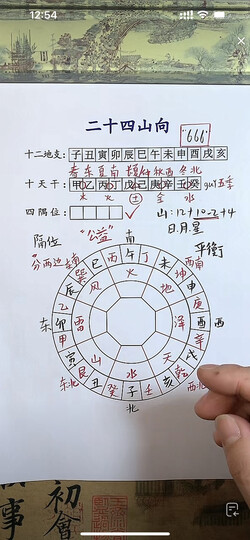 12:54
二十四山向
"666"
十二地支:子丑寅卯辰巳午未申酉戌亥
春东夏南 秋西冬北
十天干:甲乙丙丁戊己庚辛壬癸 季
木 火 土 金 水
四隅位: 山:12+10-2+4
日.月.星
隅位 "公益" 南 平衡
东南 西南
巽 巳 丙 午 丁 未 坤
辰 风 火 地 申
乙 庚
东 卯 雷 泽 酉 西
甲 辛
寅 山 水 天 戌
东北 艮 丑 癸 子 壬 亥 乾 西北
北
初會
事